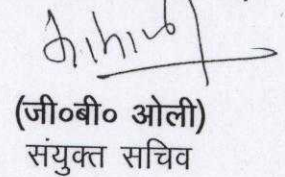 (जी०बी० ओली)
संयुक्त सचिव